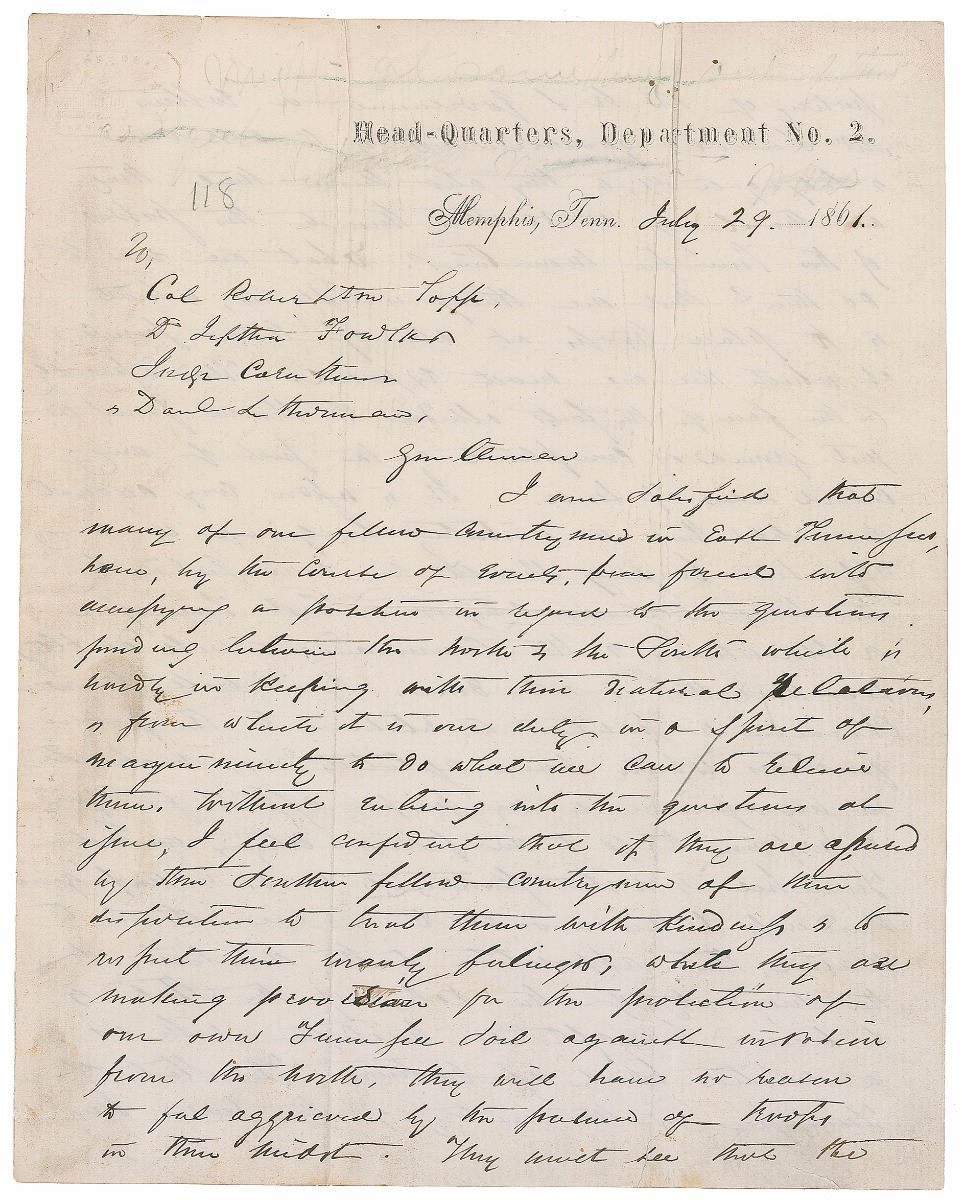 Head-Quarters, Department No. 2.
118
Memphis, Tenn. July 29. 1861.
To,
Col Robertson Topp,
Dr Jeptha Fowlkes
Judge Caruthers
& Danl L Thomas,
Gentlemen
I am satisfied that
many of our fellow countrymen in East Tennessee,
have, by the course of events, been forced into
occupying a position in regard to the questions
pending between the North & the South which is
hardly in keeping with their natural relations,
& from which it is our duty in a spirit of
magnanimity to do what we can to relieve
them. Without entering into the questions at
issue, I feel confident that if they are assured
by their Southern fellow countrymen of their
disposition to treat them with kindness & to
respect their manly feelings, while they are
making provision for the protection of
our own Tennessee soil against invasion
from the North, they will have no reason
to feel aggrieved by the presence of troops
in their midst. They must see that the